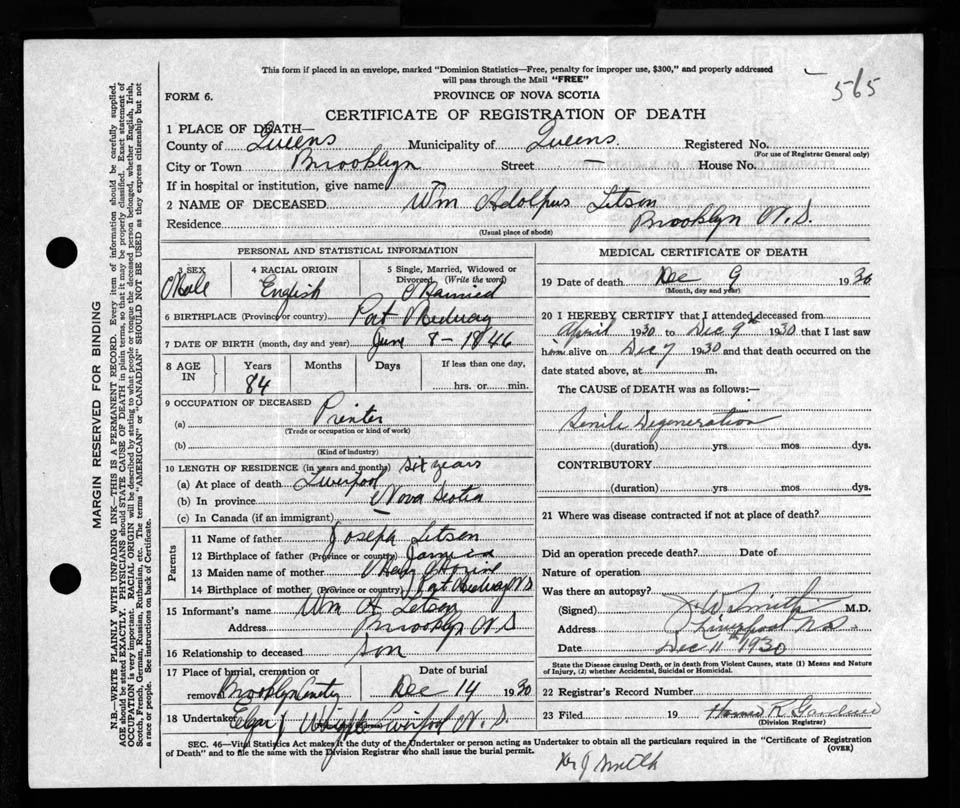 This form if placed in an envelope, marked "Dominion Statistics—Free, penalty for improper use, $300," and properly addressed
will pass through the Mail "FREE"
565
FORM 6.
PROVINCE OF NOVA SCOTIA
CERTIFICATE OF REGISTRATION OF DEATH
1 PLACE OF DEATH—
County of Queens Municipality of Queens. Registered No.
(For use of Registrar General only)
City or Town Brooklyn Street — House No.
If in hospital or institution, give name
2 NAME OF DECEASED Wm Adolphus Letson
Residence Brooklyn N.S.
(Usual place of abode)
PERSONAL AND STATISTICAL INFORMATION
3 SEX Male
4 RACIAL ORIGIN English
5 Single, Married, Widowed or Divorced (Write the word) Married
6 BIRTHPLACE (Province or country) Port Medway
7 DATE OF BIRTH (month, day and year) June 8-1846
8 AGE IN Years 84 Months Days If less than one day, hrs. or min.
9 OCCUPATION OF DECEASED
(a) Printer
(Trade or occupation or kind of work)
(b)
(Kind of industry)
10 LENGTH OF RESIDENCE (in years and months) years
(a) At place of death Liverpool
(b) In province Nova Scotia
(c) In Canada (if an immigrant)
Parents
11 Name of father Joseph Letson
12 Birthplace of father (Province or country)
13 Maiden name of mother
14 Birthplace of mother (Province or country) Port Medway NS
15 Informant's name Wm A. Letson
Address Brooklyn N S
16 Relationship to deceased Son
17 Place of burial, cremation or removal Brooklyn Date of burial Dec 14 1930
18 Undertaker Liverpool N.S.
MEDICAL CERTIFICATE OF DEATH
19 Date of death Dec 9 1930
(Month, day and year)
20 I HEREBY CERTIFY that I attended deceased from
April 1930 to Dec 9th 1930 that I last saw
him alive on Dec 7 1930 and that death occurred on the
date stated above, at m.
The CAUSE of DEATH was as follows:
Senile Degeneration
(duration) yrs mos dys.
CONTRIBUTORY
(duration) yrs mos dys.
21 Where was disease contracted if not at place of death?
Did an operation precede death? Date of
Nature of operation
Was there an autopsy?
(Signed) J. W. Smith M.D.
Address Liverpool N.S.
Date Dec 11th 1930
State the Disease causing Death, or in death from Violent Causes, state (1) Means and Nature
of Injury, (2) whether Accidental, Suicidal or Homicidal.
22 Registrar's Record Number
23 Filed 19 R. Gardner
(Division Registrar)
SEC. 46—Vital Statistics Act makes it the duty of the Undertaker or person acting as Undertaker to obtain all the particulars required in the "Certificate of Registration
of Death" and to file the same with the Division Registrar who shall issue the burial permit.
(OVER)
J Smith
MARGIN RESERVED FOR BINDING
N.B.—WRITE PLAINLY WITH UNFADING INK—THIS IS A PERMANENT RECORD. Every item of information should be carefully supplied.
AGE should be stated EXACTLY. PHYSICIANS should STATE CAUSE OF DEATH in plain terms, so that it may be properly classified. Exact statement of
OCCUPATION is very important. RACIAL ORIGIN will be described by stating to what people or tongue the deceased person belonged, whether English, Irish,
Scotch, French, German, Russian, Ruthenian, etc. The terms "AMERICAN" or "CANADIAN" SHOULD NOT BE USED as they express citizenship but not
a race or people. See instructions on back of Certificate.